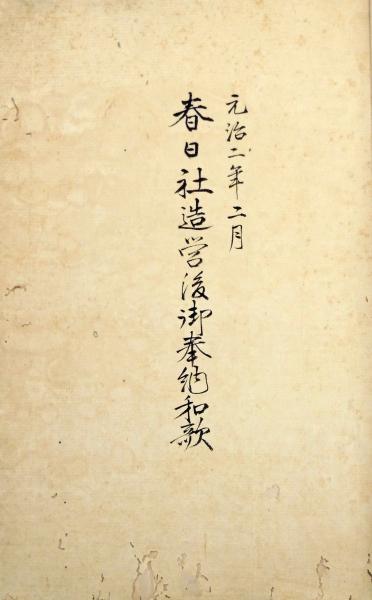 元治二年二月
春日社造営後御奉納和歌